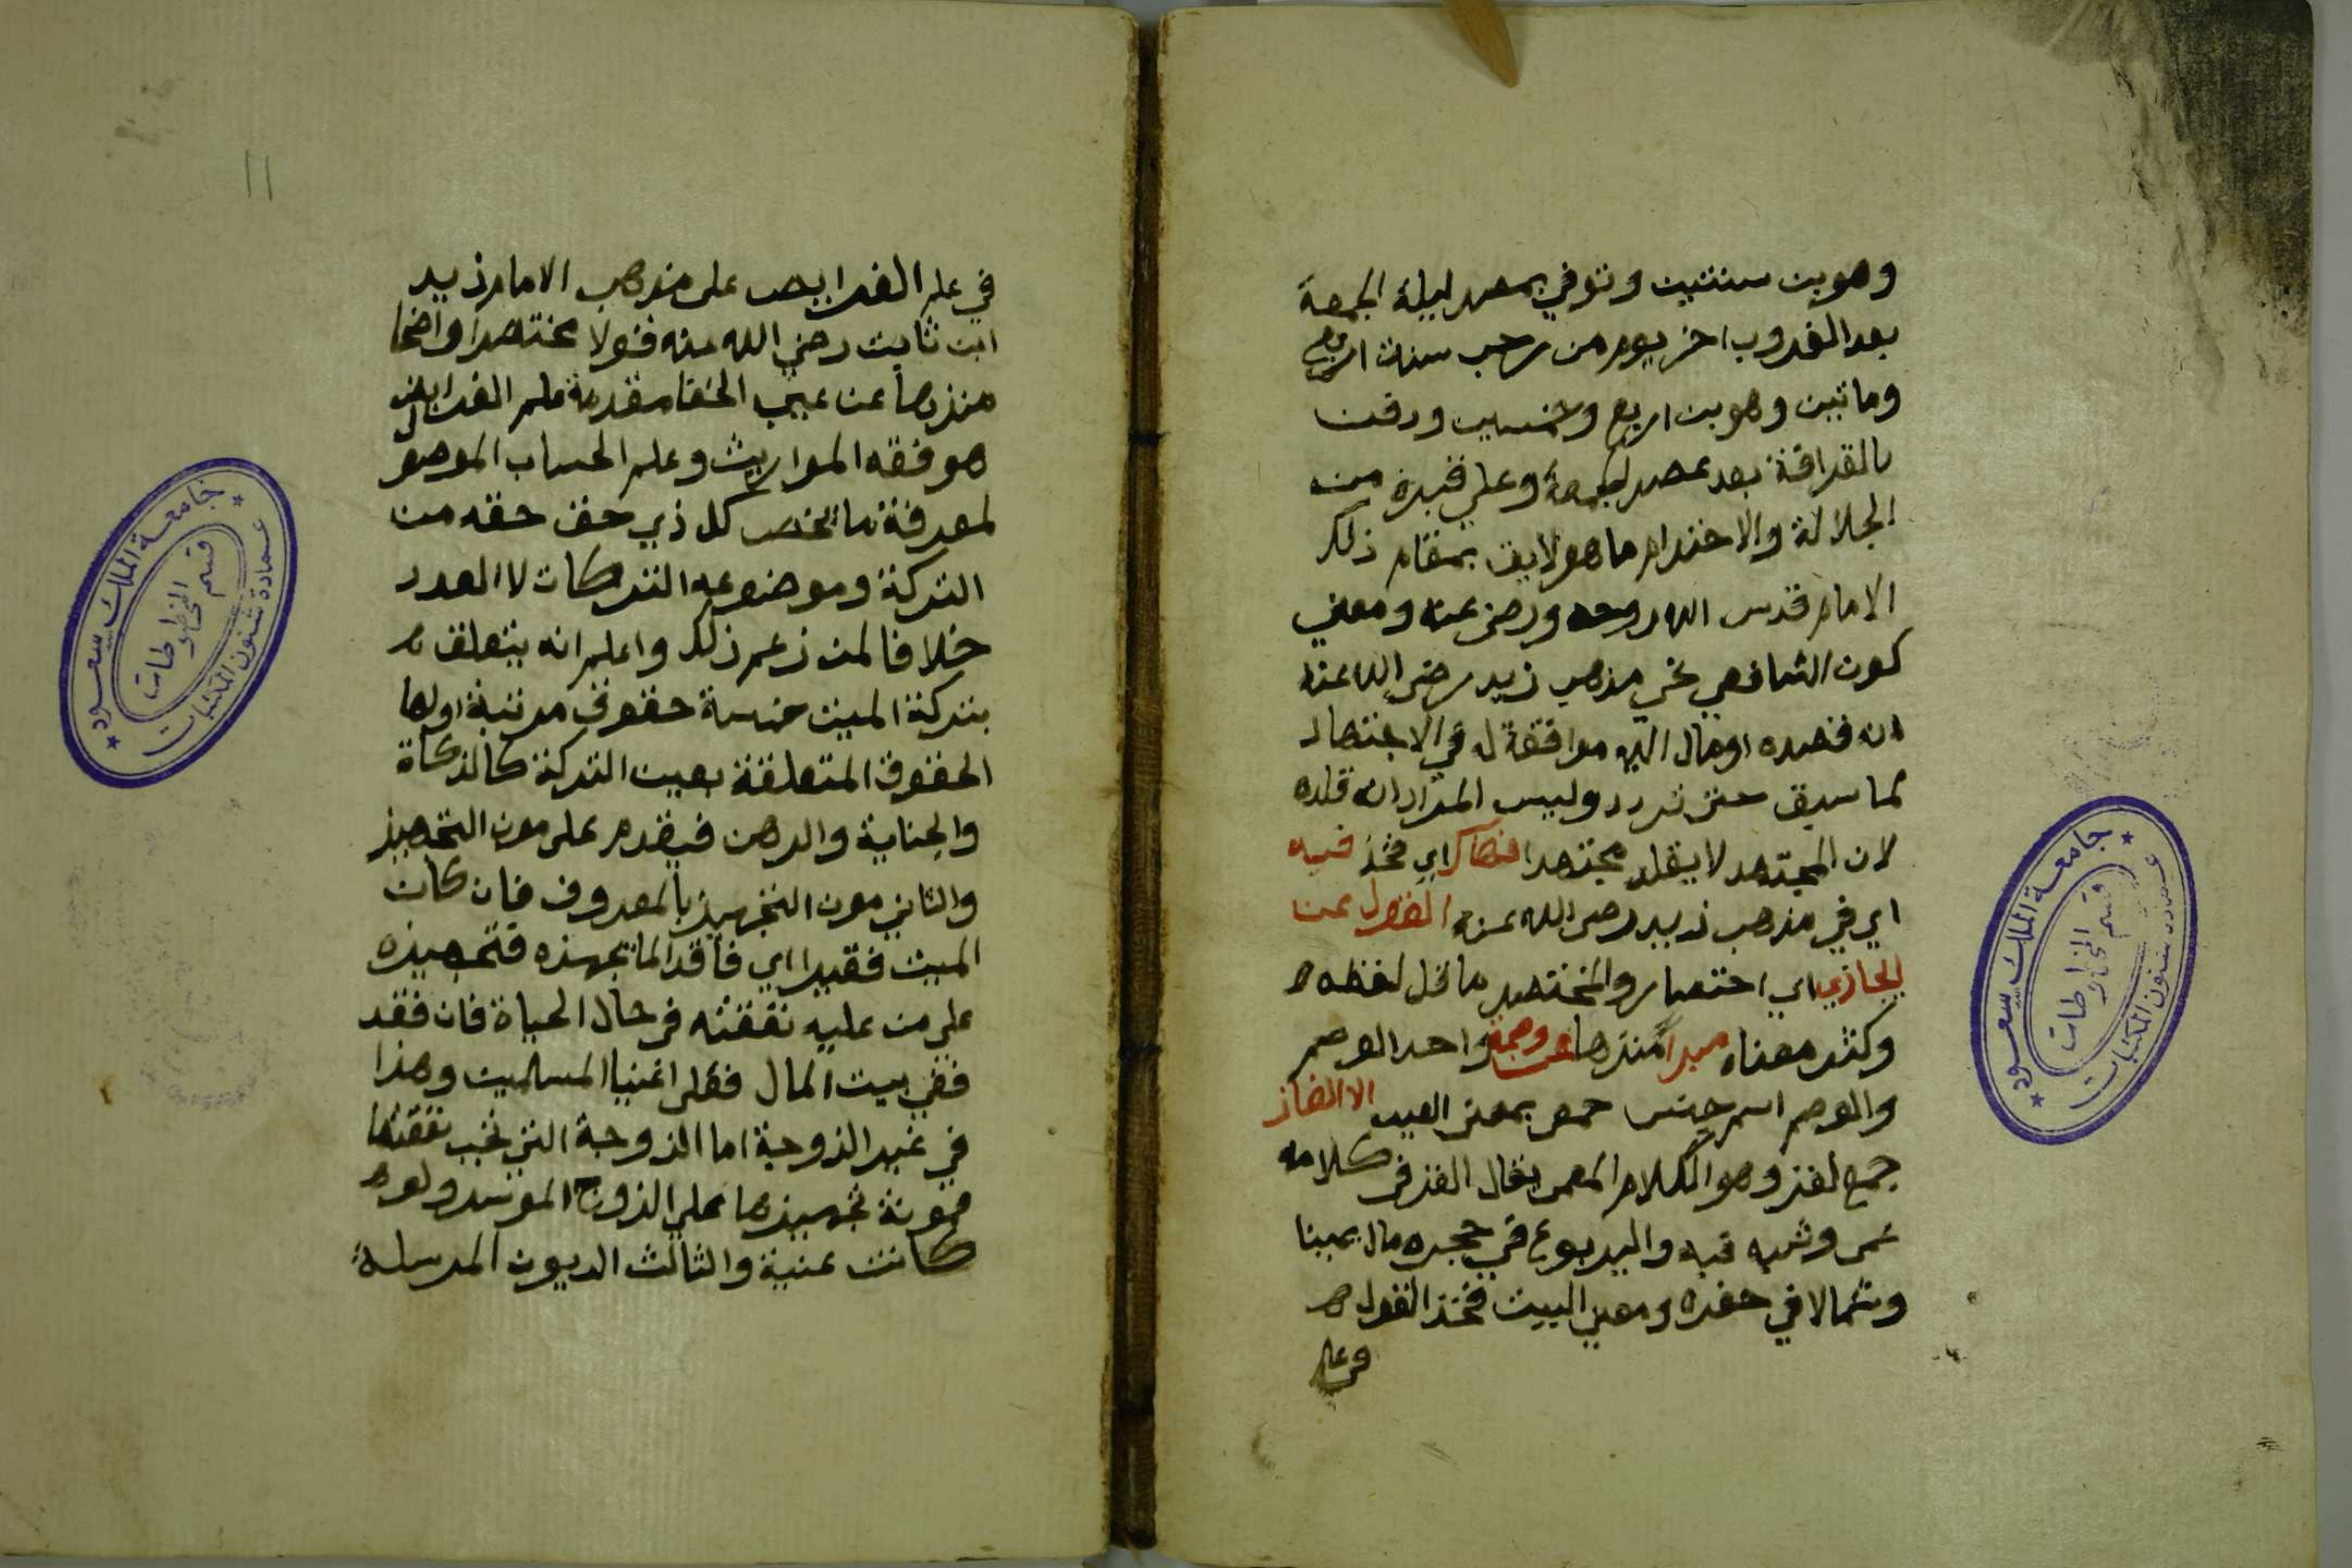 وهو بن سنتين وتوفي بمصر ليلة الجمعة
بعد الغروب اخر يوم من رجب سنة اربع
وماتين وهو بن اربع وخمسين ودفن
بالقرافة بعد عصر الجمعة وعلي قبره من
الجلالة والاحترام ما هو لايق بمقام ذلك
الامام قدس الله روحه ورضي عنه ومعني
كون الشافعي نحي مذهب زيد رضي الله عنه
انه قصده او مال اليه موافقة له في الاجتهاد
كما سبق حتي تردد وليس المراد انه قلده
لان المجتهد لا يقلد مجتهدا فهاك اي فخذ فيه
اي في مذهب زيد رضي الله عنه القول عن
ايجازي اي اختصار والمختصر ما قل لفظه
وكثر معناه مبرا منزها عن وصمة واحد الوصم
والوصم اسم جنس جمعي بمعني العيب الالغاز
جمع لغز وهو الكلام المعمي يقال الغز في كلامه
عمي وشبه فيه واليربوع في حجره مال يمينا
وشمالا في حفره ومعني البيت فخذ القول
في علم
١١
في علم الفرايض على مذهب الامام زيد
ابن ثابت رضي الله عنه قولا مختصرا واضحا
منزها عن عيب الخفا مقدمة علم الفرايض
هو فقه المواريث وعلم الحساب الموصل
لمعرفة ما يخص كل ذي حق حقه من
التركة وموضوعه التركات لا العدد
خلافا لمن زعم ذلك واعلم انه يتعلق
بتركة الميت خمسة حقوق مرتبة اولها
الحقوق المتعلقة بعين التركة كالزكاة
والجناية والرهن فيقدم على مون التجهيز
والثاني مون التجهيز بالمعروف فان كان
الميت فقيرا اي فاقدا لما يجهزه فتجهيزه
على من عليه نفقته في حال الحياة فان فقد
ففي بيت المال فعلى اغنيا المسلمين وهذا
في غير الزوجة اما الزوجة التي تجب نفقتها
فمونة تجهيزها علي الزوج الموسر ولو
كانت غنية والثالث الديون المرسلة
جامعة الملك سعود
عمادة شئون المكتبات
قسم المخطوطات
جامعة الملك سعود
عمادة شئون المكتبات
قسم المخطوطات